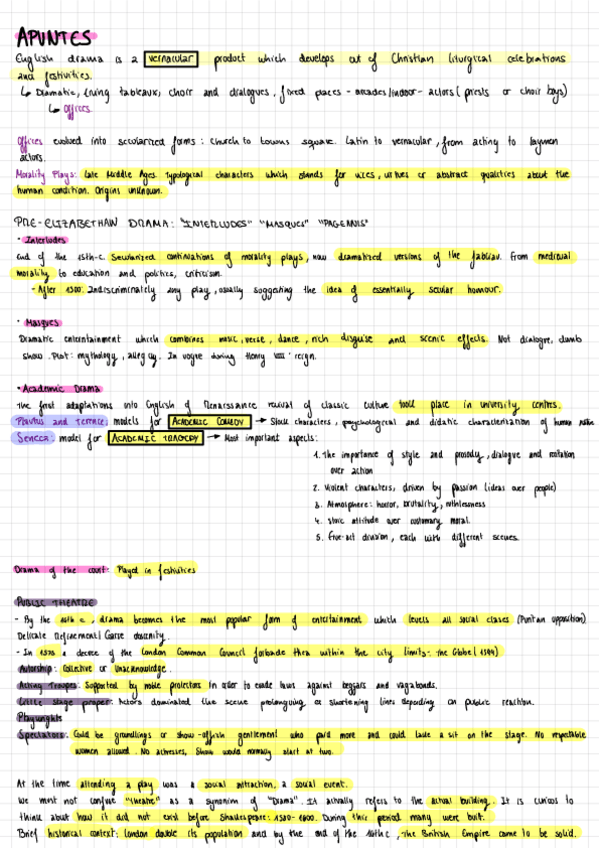 APUNTES
English drama is a vernacular product which develops out of Christian liturgical celebrations
and festivities.
↳ Dramatic, living tableaux, choir and dialogues, fixed places - arcades/indoor - actors (priests or choir boys)
↳ Offices.
Offices evolved into secularized forms: church to towns square. Latin to vernacular, from acting to laymen
actors.
Morality Plays: Late Middle Ages. Typological characters which stands for vices, virtues or abstract qualities about the
human condition. Origins unknown.
PRE-ELIZABETHAN DRAMA: "INTERLUDES" "MASQUES" "PAGEANTS"
· Interludes
End of the 15th-c. Secularized continuations of morality plays, now dramatized versions of the fabliau. From medieval
morality to education and politics, criticism.
- After 1500: Indiscriminately any play, usually suggesting the idea of essentially secular humour.
· Masques
Dramatic entertainment which combines music, verse, dance, rich disguise and scenic effects. Not dialogue, dumb
show. Plot: mythology, allegory. In vogue during Henry VIII' reign.
· Academic Drama
The first adaptations into English of Renaissance revival of classic culture took place in university centres.
Plautus and Terence: models for ACADEMIC COMEDY → Stock characters, psychological and didatic characterization of human
Seneca: model for ACADEMIC TRAGEDY → Most important aspects:
1. The importance of style and prosody, dialogue and recitation
over action
2. Violent characters, driven by passion (ideas over people)
3. Atmosphere: horror, brutality, ruthlessness
4. Stoic attitude over customary moral.
5. Five-act division, each with different scenes.
Drama of the court: Played in festivities
PUBLIC THEATRE
- By the 16th c, drama becomes the most popular form of entertainment which levels all social clases (Puritan opposition)
Delicate Refinement/ Coarse obscenity.
- In 1575 a decree of the London Common Council forbade thea within the city limits- the Globe( 1599)
Autorship: Collective or Unacknowledge.
Acting Troupes: Supported by noble protectors in order to evade laws against beggars and vagabonds.
Little stage proper: Actors dominated the scene prolonguing or shortening lines depending on public reaction.
Playwrights
Spectators: Could be groundlings or show-offish gentlement who paid more and could have a sit on the stage. No respectable
women allowed. No actresses, Show would normally start at two.
At the time attending a play was a social attraction, a social event.
We must not confuse "theatre" as a synonim of "Drama". It actually refers to the actual building. It is curious to
think about how it did not exist before Shakespeare: 1580-1600. During this period many were built.
Brief historical context: London double its population and by the end of the 16thc, the British Empire came to be solid.